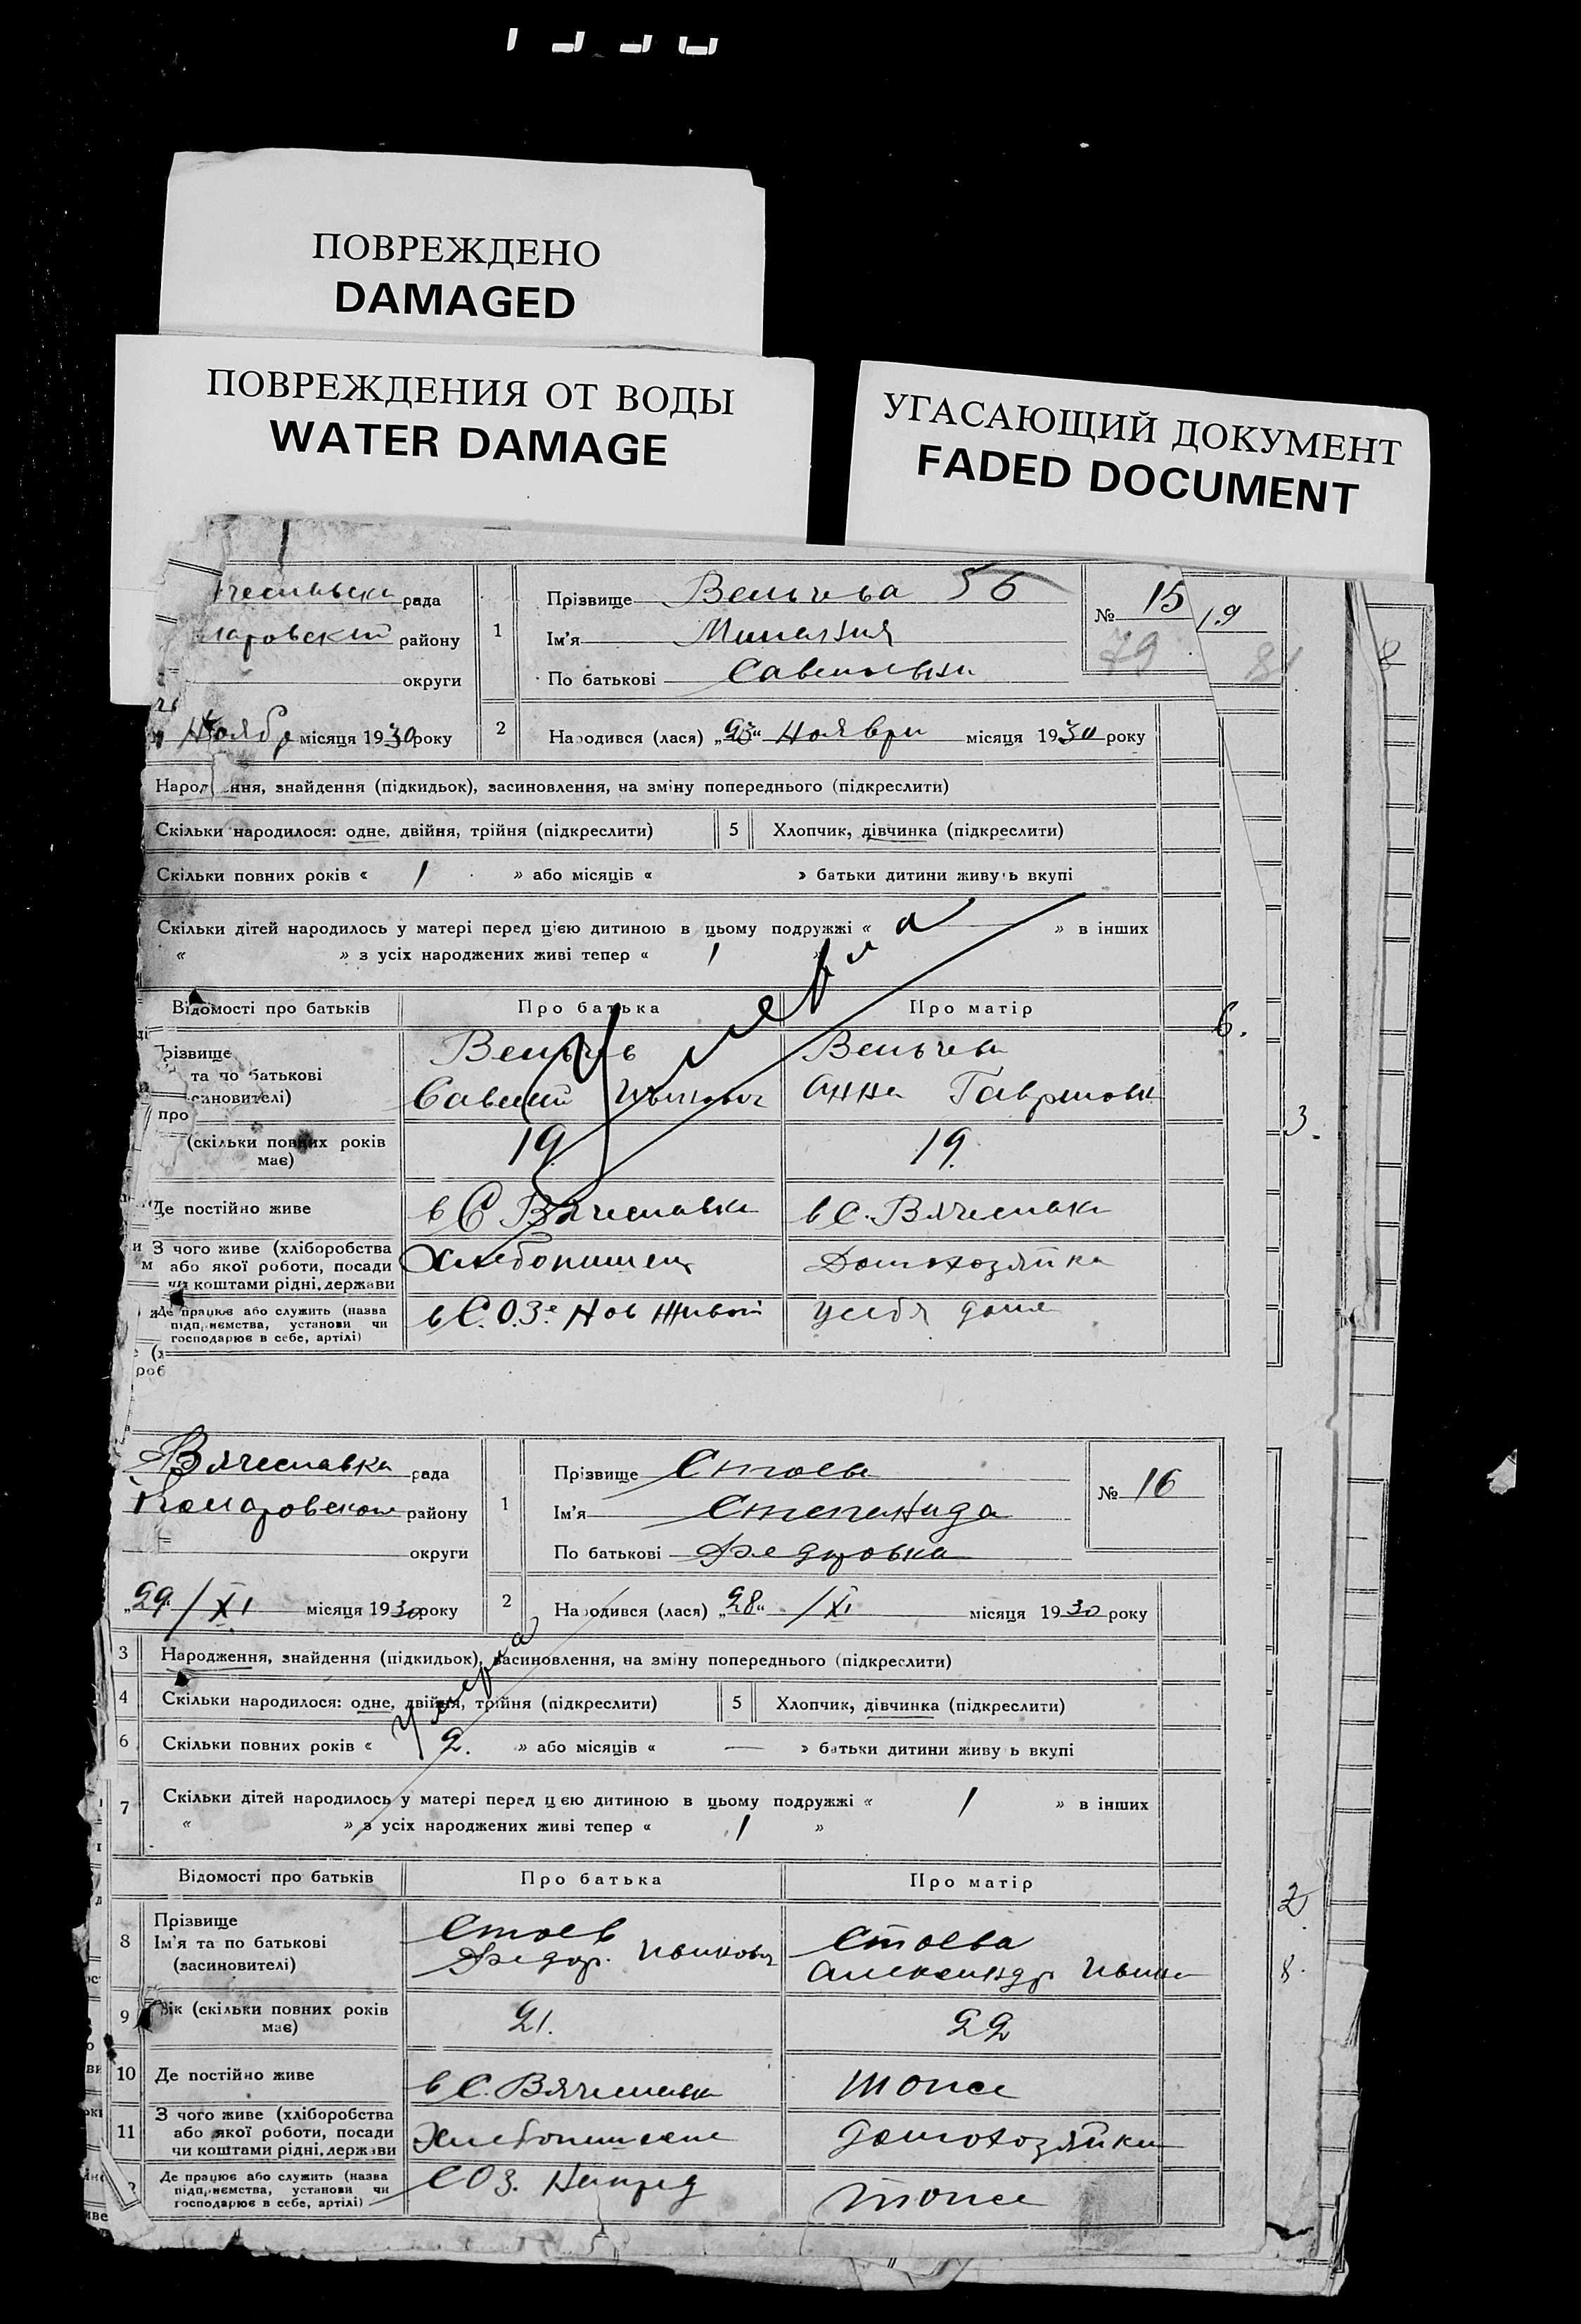 ПОВРЕЖДЕНО
DAMAGED
ПОВРЕЖДЕНИЯ ОТ ВОДЫ
WATER DAMAGE
УГАСАЮЩИЙ ДОКУМЕНТ
FADED DOCUMENT
рада
району
округи
Ноябр місяця 1930 року
1
Прізвище Вельчева 56
Ім'я
По батькові
№ 15
79
19
2
Народився (лася) „ “ Ноября місяця 1930 року
ння, знайдення (підкидьок), засиновлення, на зміну попереднього (підкреслити)
Скільки народилося: одне, двійня, трійня (підкреслити)
5
Хлопчик, дівчинка (підкреслити)
Скільки повних років « 1 » або місяців « » батьки дитини живуть вкупі
Скільки дітей народилось у матері перед цією дитиною в цьому подружжі « » в інших
« » з усіх народжених живі тепер « 1 »
умерла
Відомості про батьків
Про батька
Про матір
6.
різвище
та по батькові
Вельчев
Савелий Иванович
Вельчева
Анна Гавриловн
(скільки повних років
має)
19
19.
3.
Де постійно живе
в С Вячеславка
в С. Вячеславка
З чого живе (хліборобства
або якої роботи, посади
чи коштами рідні, держави
Хлебопашец
Домохозяйка
Де працює або служить (назва
підприємства, установи чи
господарює в себе, артілі)
в С.О.Зе Нов Живот
у себя доме
Вячеславка рада
району
округи
„29“ /XI місяця 1930 року
1
Прізвище Стоева
Ім'я Степанида
По батькові Федоровна
№ 16
2
Народився (лася) „28“ /XI місяця 1930 року
3
Народження, знайдення (підкидьок), засиновлення, на зміну попереднього (підкреслити)
4
Скільки народилося: одне, двійня, трійня (підкреслити)
5
Хлопчик, дівчинка (підкреслити)
умерла
6
Скільки повних років « 2. » або місяців « — » батьки дитини живуть вкупі
7
Скільки дітей народилось у матері перед цією дитиною в цьому подружжі « 1 » в інших
« » з усіх народжених живі тепер « 1 »
Відомості про батьків
Про батька
Про матір
8
Прізвище
Ім'я та по батькові
(засиновителі)
Стоев
Федор. Иванович
Стоева
Александр Иван
8.
9
Вік (скільки повних років
має)
21.
22
10
Де постійно живе
в С. Вячеславка
тоже
11
З чого живе (хліборобства
або якої роботи, посади
чи коштами рідні, держави
Домохозяйка
Де працює або служить (назва
підприємства, установи чи
господарює в себе, артілі)
СОЗ. Напред
тоже